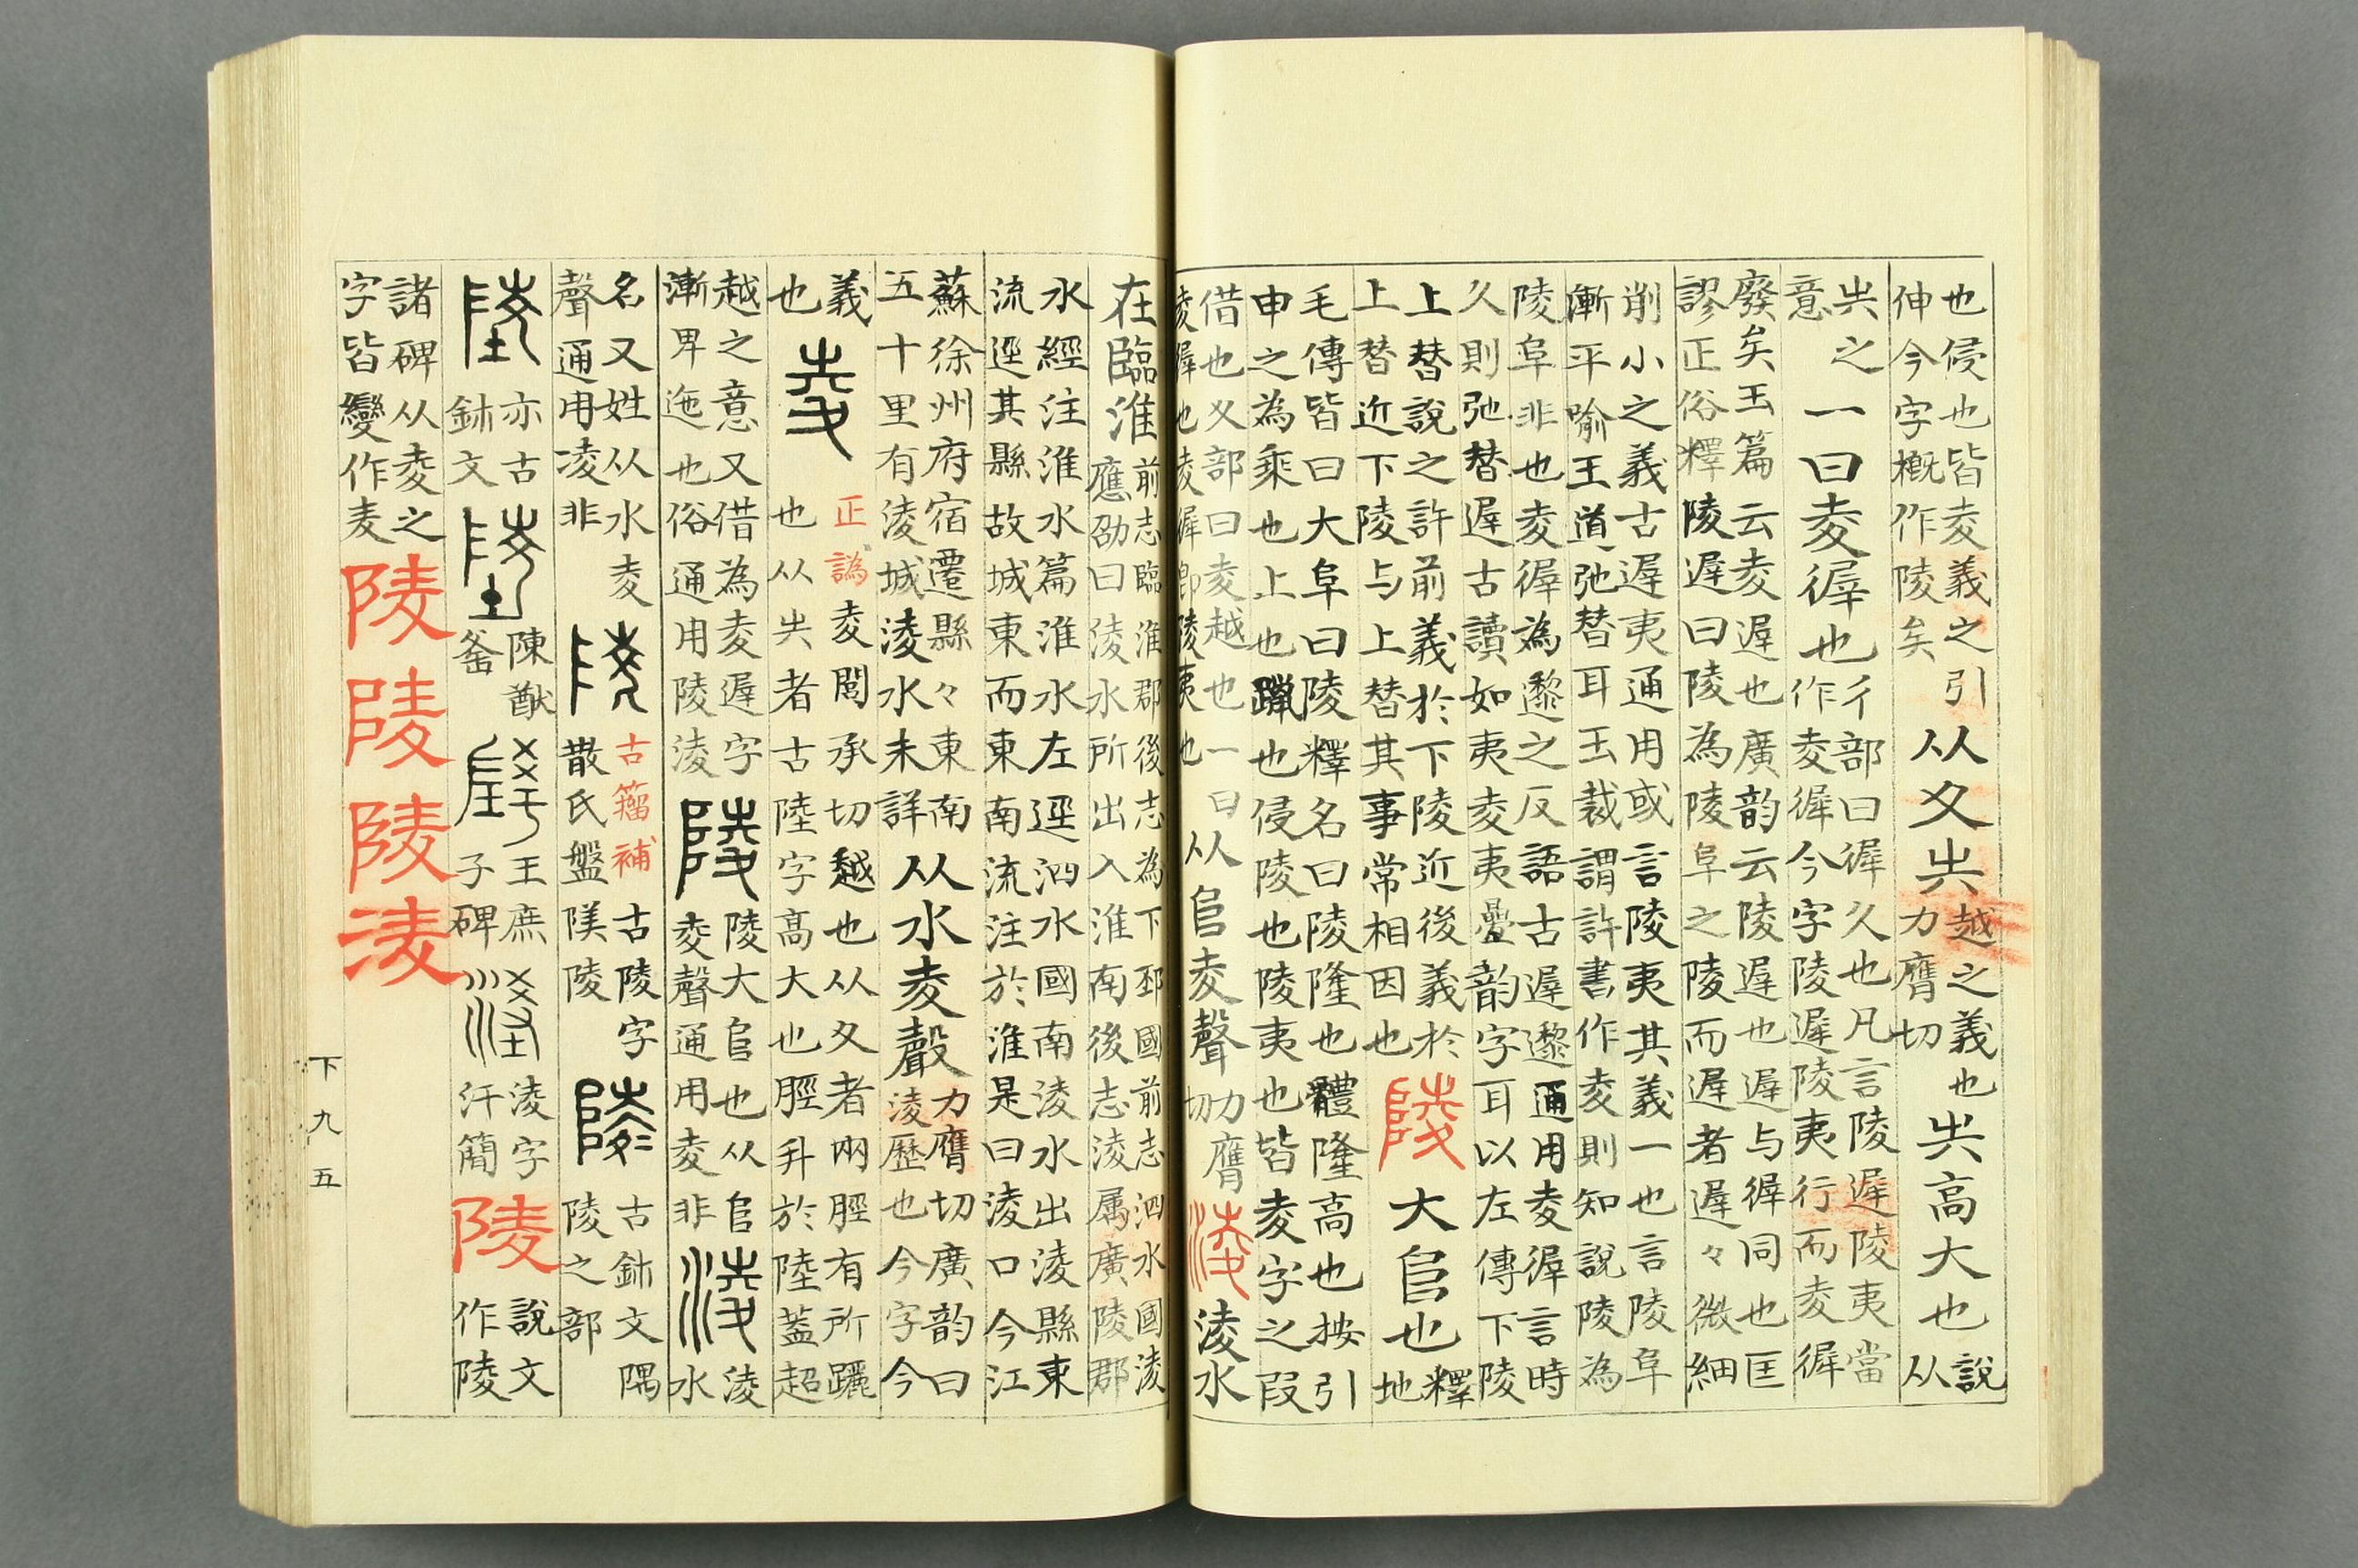 也侵也皆夌義之引
伸今字概作陵矣
从夊圥
越之義也
力膺切
圥高大也
說
从
圥之
意
一曰夌徲也
彳部曰徲久也凡言陵遲陵夷當
作夌徲今字陵遲陵夷行而夌徲
廢矣玉篇云夌遲也廣韵云陵遲也遲与徲同也匡
謬正俗釋陵遲曰陵為陵阜之陵而遲者遲々微細
削小之義古遲夷通用或言陵夷其義一也言陵阜
漸平喻王道弛替耳玉裁謂許書作夌則知說陵為
陵阜非也夌徲為邌之反語古遲邌通用夌徲言時
久則弛替遲古讀如夷夌夷疊韵字耳以左傳下陵
上替說之許前義於下陵近後義於
上替近下陵与上替其事常相因也
陵
大𨸏也
釋
地
毛傳皆曰大阜曰陵釋名曰陵隆也體隆高也按引
申之為乘也上也躐也侵陵也陵夷也皆夌字之叚
借也夊部曰夌越也一曰
夌徲也夌徲即陵夷也
从𨸏夌聲
力膺
切
淩
淩水
在臨淮
前志臨淮郡後志為下邳國前志泗水國淩
應劭曰淩水所出入淮南後志淩属廣陵郡
水經注淮水篇淮水左逕泗水國南淩水出淩縣東
流逕其縣故城東而東南流注於淮是曰淩口今江
蘇徐州府宿遷縣々東南
五十里有淩城淩水未詳
从水夌聲
力膺切廣韵曰
淩歷也今字今
義
也
夌
正譌
夌閭承切越也从夊者㒳脛有所躧
也从圥者古陸字高大也脛升於陸蓋超
越之意又借為夌遲字
漸卑迆也俗通用陵淩
陵
陵大𨸏也从𨸏
夌聲通用夌非
淩
淩
水
名又姓从水夌
聲通用凌非
陵
古籀補
古陵字
散氏盤
陵
陵
古鉥文隅
陵之部
陵
亦古
鉥文
陵
陳猷
釜
陵
王庶
子碑
淩
淩字
汗簡
陵
說文
作陵
諸碑从夌之
字皆變作麦
陵陵陵凌
下九五